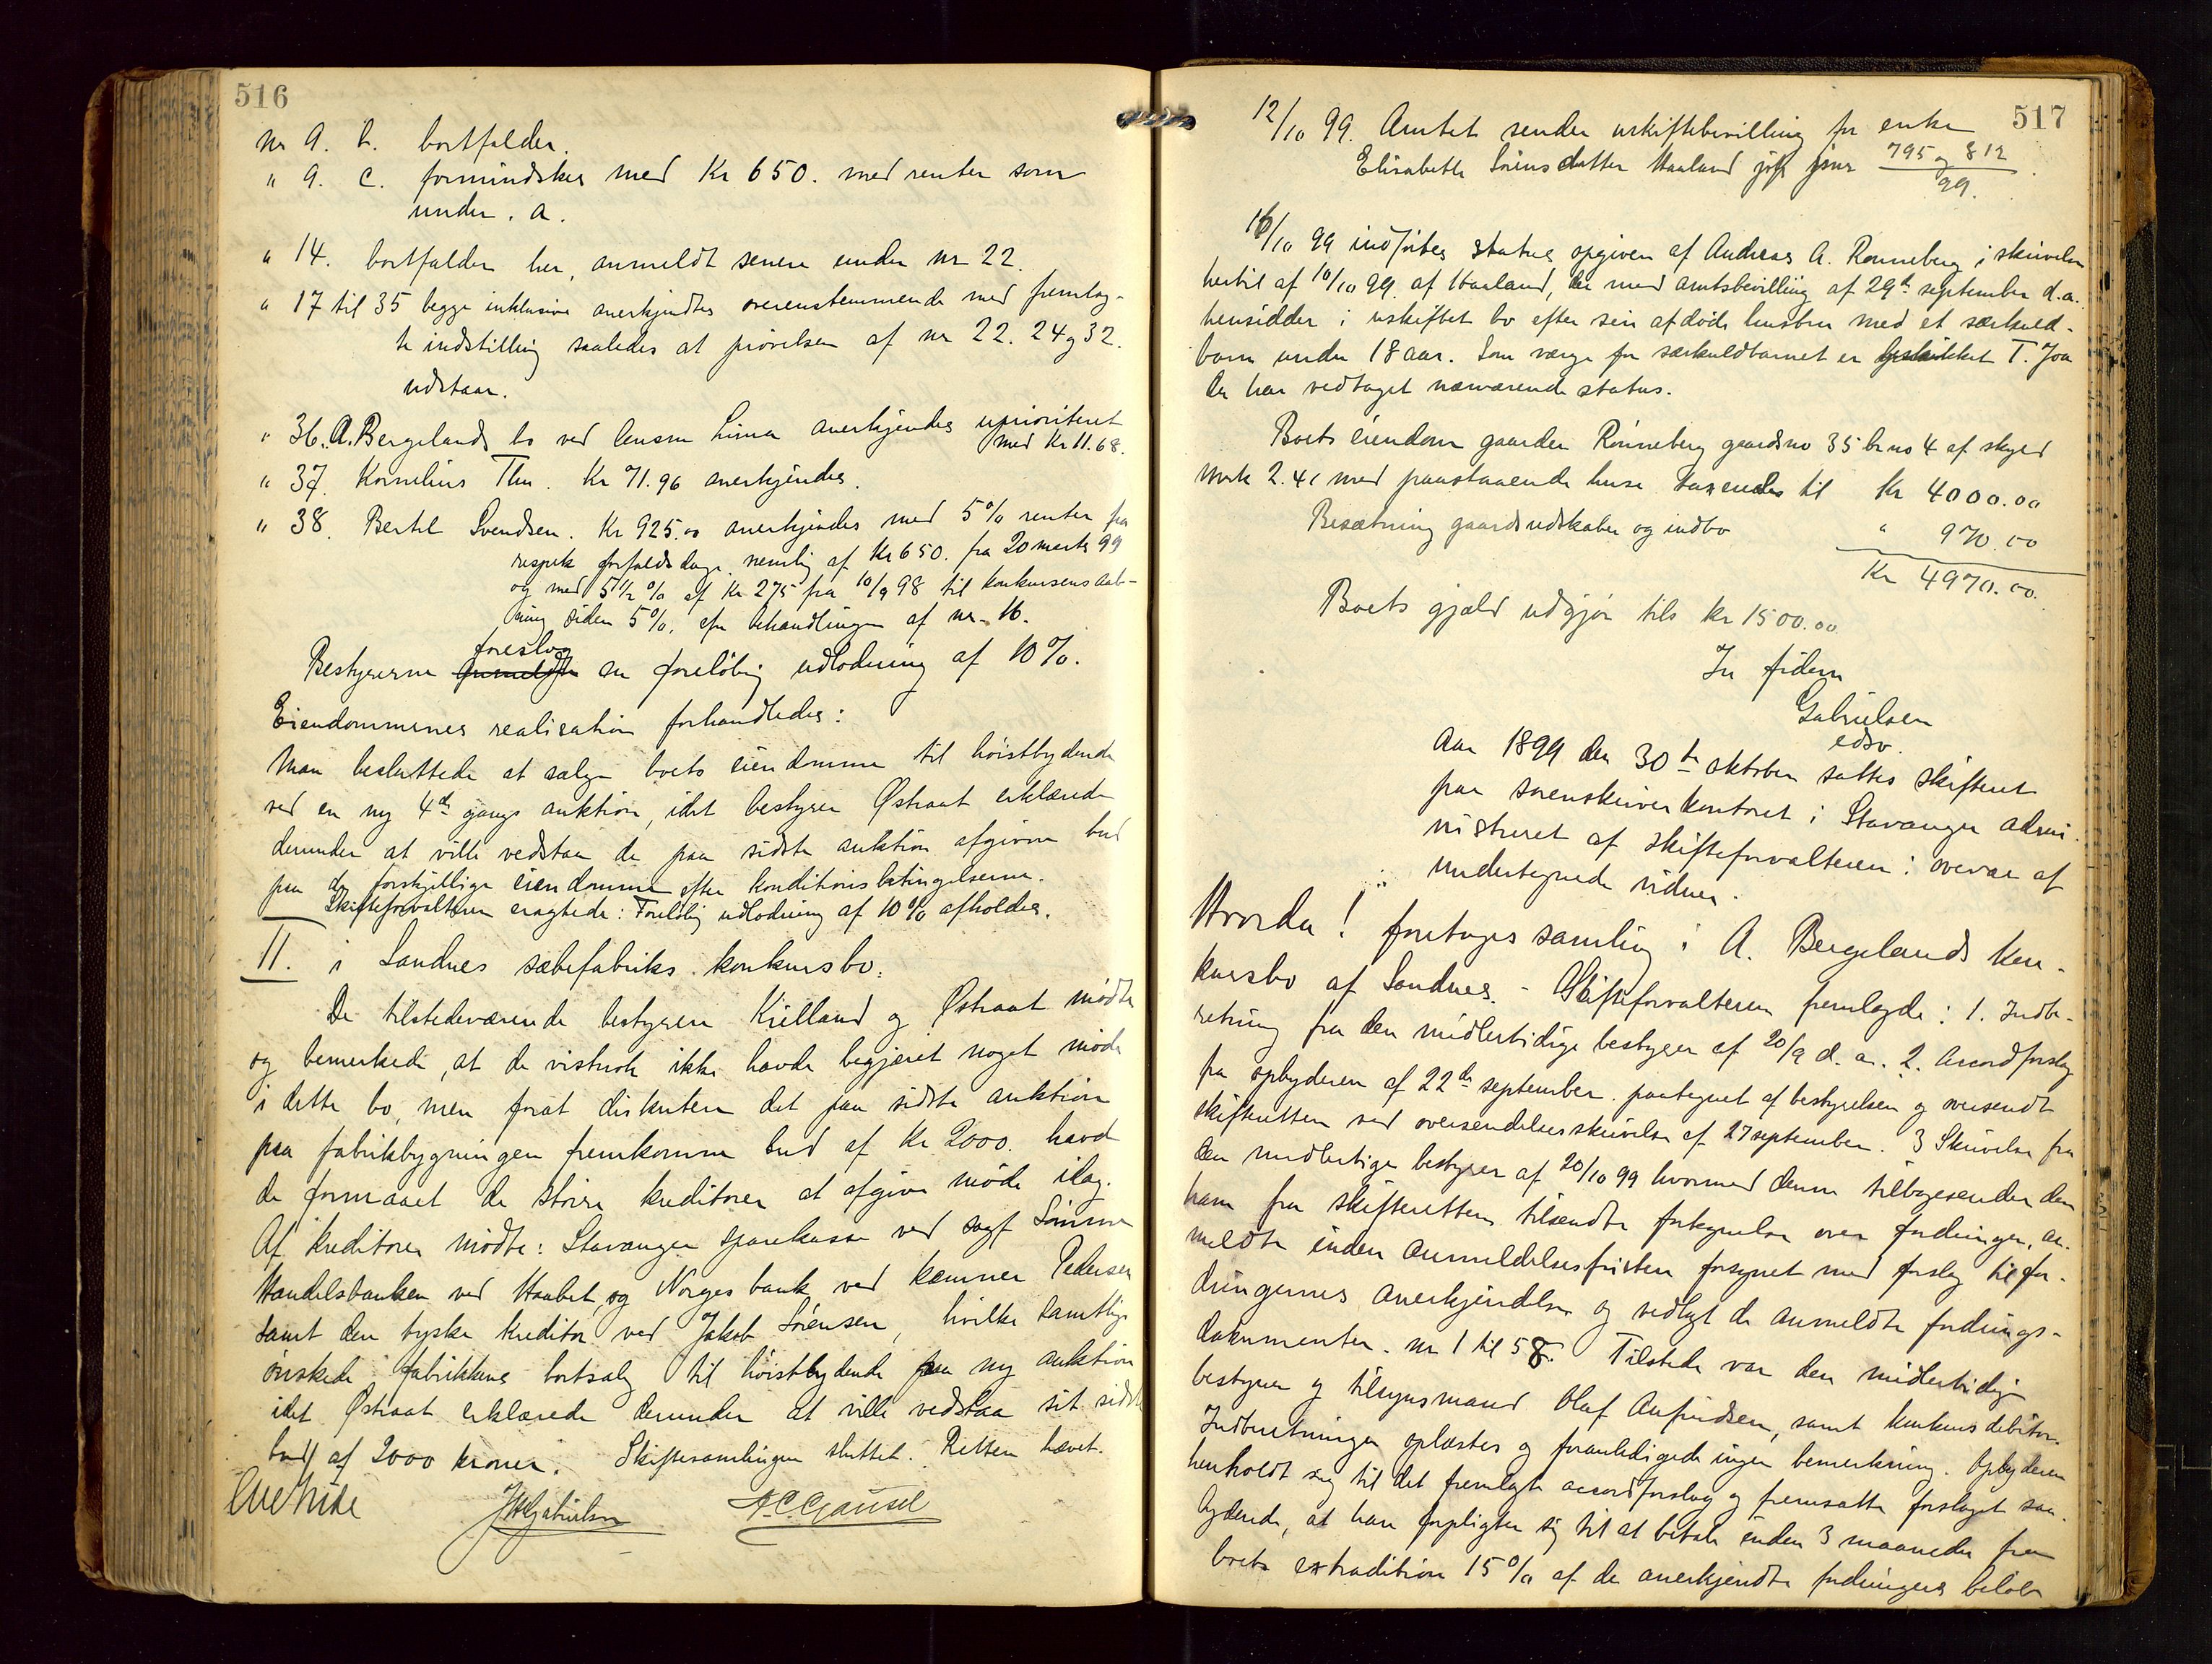 516
nr 9. b. bortfalder.
" 9. c. formindskes med Kr 650. med renter som
under. a.
" 14. bortfalder her, anmeldt senere under nr 22.
" 17 til 35 begge inklusive anerkjendtes overensstemmende med fremlag-
te indstilling saaledes at prövelsen af nr 22. 24 og 32.
udstaar.
" 36. A. Bergelands bo ved Lima anerkjendes uprioriteret
med Kr 11.68.
" 37. Kornelius Thu. Kr 71.96 anerkjendes.
" 38. Bertel Svendsen. Kr 925.00 anerkjendes med 5% renter fra
respek forfaldsdage, nemlig af Kr 650. fra 20 marts 99
og med 5½ % af Kr 275 fra 10/9 98 til konkursens aab-
ning siden 5%, efr behandlingen af nr. 16.
foreslog
Bestyrerne en foreløbig udlodning af 10%.
Eiendommenes realisation forhandledes:
Man besluttede at sælge boets eiendomme til höistbydende
ved en ny 4de gangs auktion, idet bestyrer Østraat erklærede
derunder at ville vedstaa de paa sidste auktion afgivne bud
paa de forskjellige eiendomme efter konditionsbetingelserne.
Skifteforvalteren eragtede: Foreløbig udlodning af 10% afholdes.
II. i Sandnes sæbefabriks konkursbo.
De tilstedeværende bestyrere Kielland og Østraat mödte
og bemerkede, at de vistnok ikke havde begjæret noget möde
i dette bo, men forat diskutere det paa sidste auktion
paa fabrikbygningen fremkomne bud af Kr 2000. havde
de formaaet de större kreditorer at afgive möde idag.
Af kreditorer mödte: Stavanger sparekasse ved sagf Sömme
Handelsbanken ved Haabet, og Norges bank ved kæmner Pedersen
samt den tyske kreditor ved Jakob Sörensen, hvilke samtlige
önskede fabrikkens bortsalg til höistbydende paa ny auktion
idet Østraat erklærede derunder at ville vedstaa sit sidste
bud af 2000 kroner. Skiftesamlingen sluttet. Retten hævet.
JHGabrielsen A.C. Gausel
517
12/10 99. Amtet sender uskiftebevilling for enke
Elisabeth Sörensdatter Haaland jfr jour 795 og 812
99.
16/10 99 indförtes status opgiven af Andreas A. Rønneberg i skrivelse
hertil af 10/10 99. af Haaland, der med amtsbevilling af 29de september d.a.
hensidder i uskiftet bo efter sin afdöde hustru med et særkuld-
barn under 18 aar. Som værge for særkuldbarnet er beskikket T. Joa
der har vedtaget nærværende status.
Boets eiendom gaarden Rönneberg gaardsno 35 br no 4 af skyld
mark 2.41 med paastaaende huse taxeredes til Kr 4000.00
Besætning gaardsredskaber og indbo " 970.00
Kr 4970.00.
Boets gjæld udgjör tils kr 1500.00
In fidem
Gabrielsen
edsv.
Aar 1899 den 30te oktober sattes skifteret
paa sorenskriverkontoret i Stavanger admi-
nistreret af skifteforvalteren i overvær af
undertegnede vidner.
Hvorda! foretoges samling i A. Bergelands kon-
kursbo af Sandnes. – Skifteforvalteren fremlagde: 1. Indbe-
retning fra den midlertidige bestyrer af 20/9 d.a. 2. Accordforslag
fra opbyderen af 22de september. paategnet af bestyrelsen og oversendt
skifteretten ved oversendelsesskrivelse af 27 september. 3 Skrivelse fra
den midlertige bestyrer af 20/10 99 hvormed denne tilbagesender den
ham fra skifteretten tilsendte fortegnelse over fordringer, an-
meldte inden anmeldelsesfristen forsynet med forslag til for-
dringernes anerkjendelse og vedlagt de anmeldte fordrings-
dokumenter. nr 1 til 58. Tilstede var den midlertidige
bestyrer og tilsynsmand Olaf Anfindsen, samt konkursdebitor.
Indberetningen oplæstes og foranledigede ingen bemerkning. Opbyderen
henholdt sig til det fremlagte accordforslag og fremsatte forslaget saa-
lydende, at han forpligter sig til at betale inden 3 maaneder fra
boets extradition 15% af de anerkjendte fordringers belöb